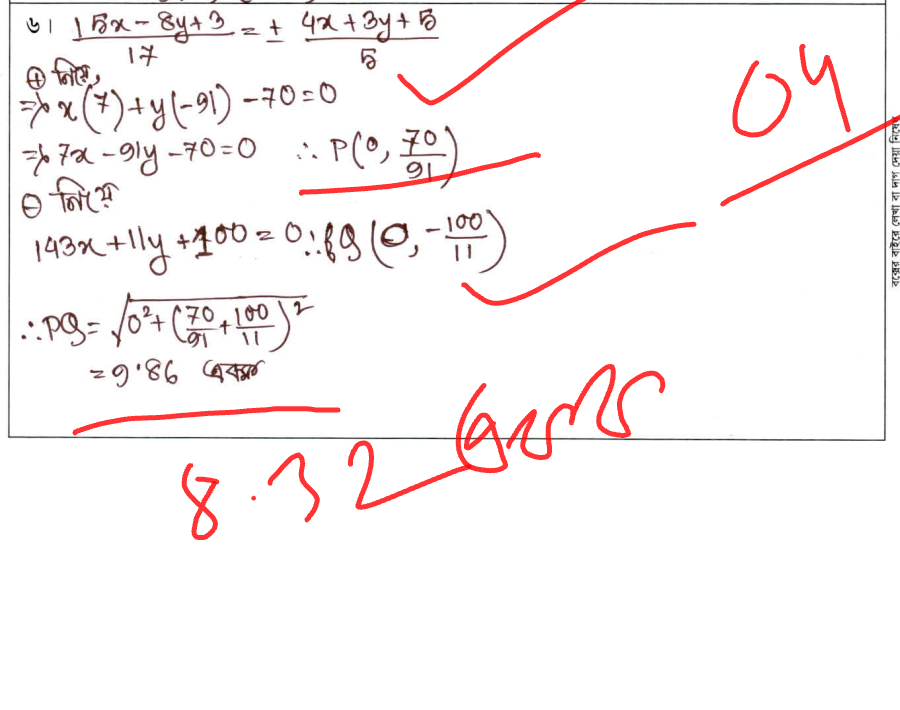 ৬। (15x - 8y + 3)/17 = ± (4x + 3y + 5)/5
⊕ নিয়ে,
=> x(7) + y(-91) - 70 = 0
=> 7x - 91y - 70 = 0 ∴ P(0, 70/91)
⊖ নিয়ে
143x + 11y + 100 = 0 ∴ Q(0, -100/11)
∴ PQ = √(0² + (70/91 + 100/11)²)
= 9.86 একক
04
8.32 একক
বক্সের বাইরে লেখা বা দাগ দেয়া নিষেধ